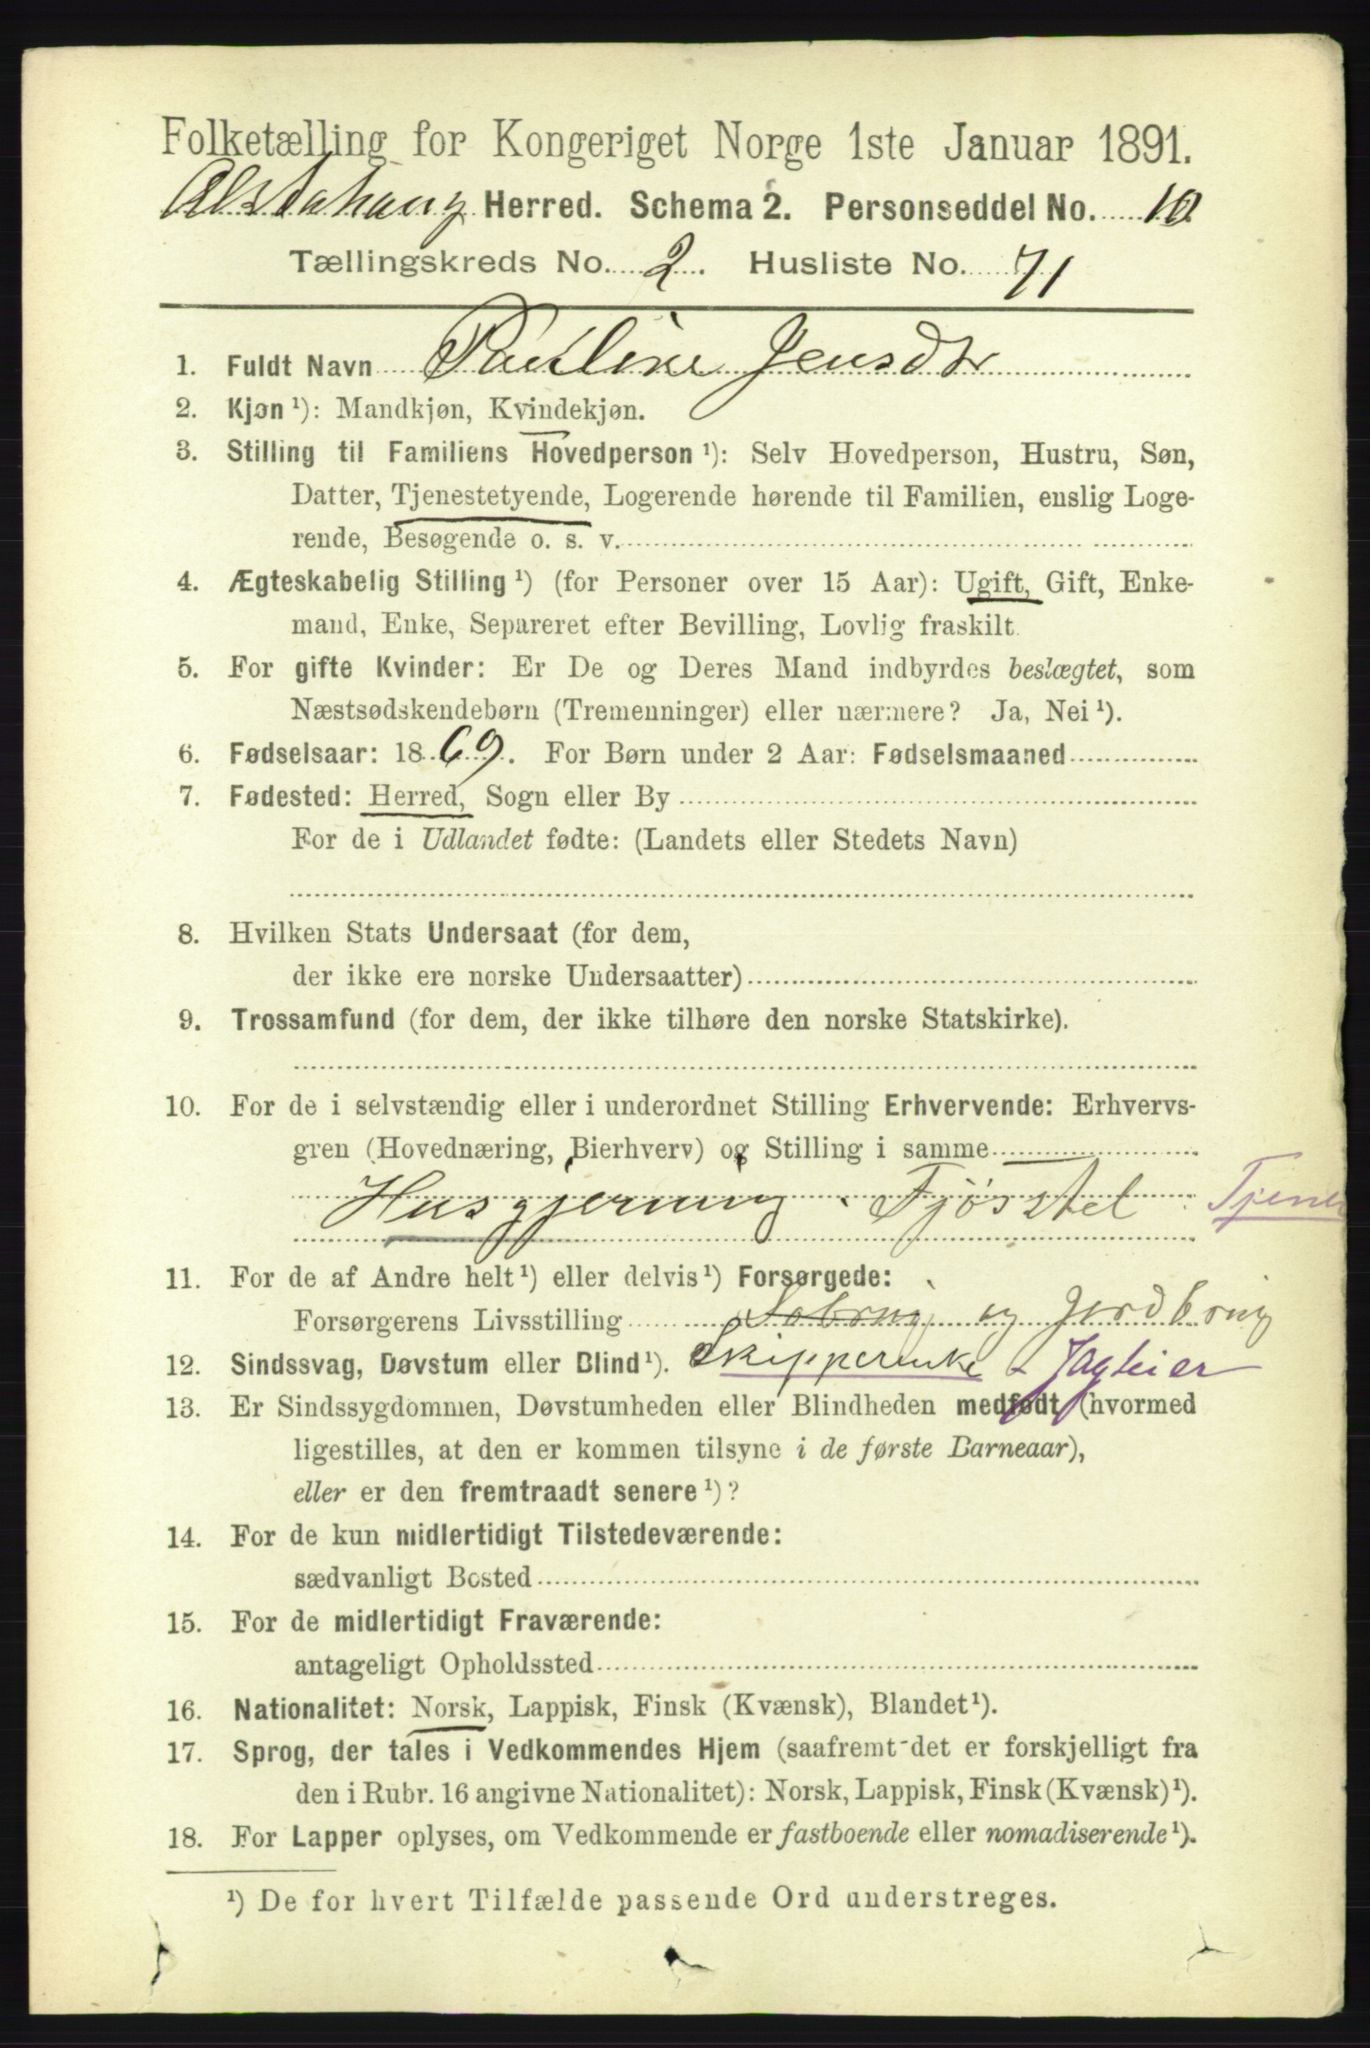 Folketælling for Kongeriget Norge 1ste Januar 1891.
Alstahaug Herred. Schema 2. Personseddel No. 10
Tællingskreds No. 2. Husliste No. 71
1. Fuldt Navn Pauline Jensdtr
2. Kjøn ¹): Mandkjøn, Kvindekjøn.
3. Stilling til Familiens Hovedperson ¹): Selv Hovedperson, Hustru, Søn,
Datter, Tjenestetyende, Logerende hørende til Familien, enslig Loge-
rende, Besøgende o. s. v.
4. Ægteskabelig Stilling ¹) (for Personer over 15 Aar): Ugift, Gift, Enke-
mand, Enke, Separeret efter Bevilling, Lovlig fraskilt
5. For gifte Kvinder: Er De og Deres Mand indbyrdes beslægtet, som
Næstsødskendebørn (Tremenninger) eller nærmere? Ja, Nei ¹).
6. Fødselsaar: 1869. For Børn under 2 Aar: Fødselsmaaned
7. Fødested: Herred, Sogn eller By
For de i Udlandet fødte: (Landets eller Stedets Navn)
8. Hvilken Stats Undersaat (for dem,
der ikke ere norske Undersaatter)
9. Trossamfund (for dem, der ikke tilhøre den norske Statskirke).
10. For de i selvstændig eller i underordnet Stilling Erhvervende: Erhvervs-
gren (Hovednæring, Bierhverv) og Stilling i samme
Husgjerning. Fjøsstel Tjener
11. For de af Andre helt ¹) eller delvis ¹) Forsørgede:
Forsørgerens Livsstilling og Jordbrug
12. Sindssvag, Døvstum eller Blind ¹). Skipperenke Jagteier
13. Er Sindssygdommen, Døvstumheden eller Blindheden medfødt (hvormed
ligestilles, at den er kommen tilsyne i de første Barneaar),
eller er den fremtraadt senere ¹)?
14. For de kun midlertidigt Tilstedeværende:
sædvanligt Bosted
15. For de midlertidigt Fraværende:
antageligt Opholdssted
16. Nationalitet: Norsk, Lappisk, Finsk (Kvænsk), Blandet ¹).
17. Sprog, der tales i Vedkommendes Hjem (saafremt det er forskjelligt fra
den i Rubr. 16 angivne Nationalitet): Norsk, Lappisk, Finsk (Kvænsk) ¹).
18. For Lapper oplyses, om Vedkommende er fastboende eller nomadiserende ¹).
¹) De for hvert Tilfælde passende Ord understreges.